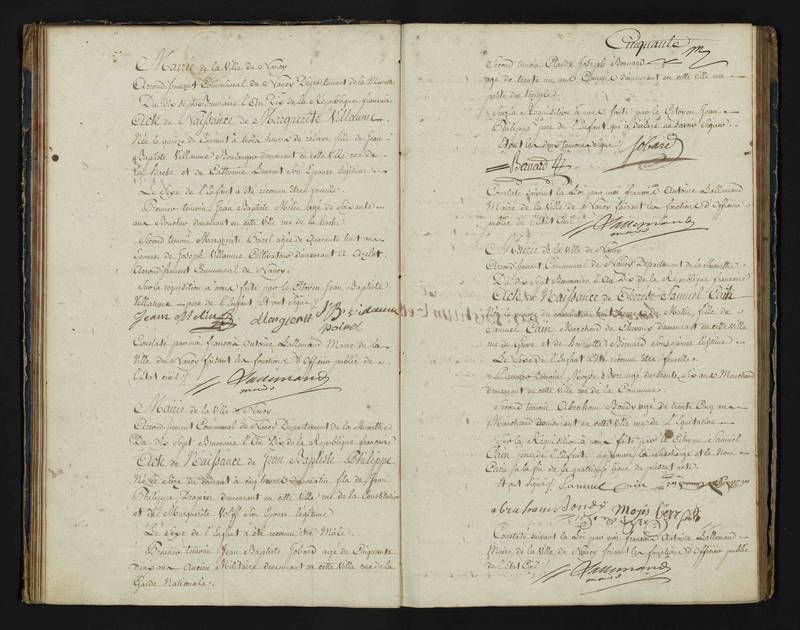 Mairie de la Ville de Nancy
Arrondissement Communal de Nancy Département de la Meurthe
Du dix sept Brumaire l'An Dix de la République française
Acte de Naissance de Marguerite Villaume
Née le quinze du Courant à trois heures de relevée fille de Jean
Baptiste Villaume Boulanger demeurant en cette ville rue de
la et de Catherine son Epouse légitime
Le Sexe de l'Enfant a été reconnu être femelle
Premier témoin Jean Baptiste agé de Soixante
ans demeurant en cette Ville rue de la
Second témoin Marguerite agée de Quarante huit ans
Epouse de Joseph Villaume Cultivateur demeurant à
Arrondissement Communal de Nancy
Sur la réquisition à nous faite par le Citoyen Jean Baptiste
Villaume père de l'Enfant Et ont Signé
Jean
Constaté par moi françois Antoine Lallemand Maire de la
Ville de Nancy faisant les fonctions d'Officier public de
l'Etat Civil
Lallemand
Mairie de la Ville de Nancy
Arrondissement Communal de Nancy Département de la Meurthe
Du dix Sept Brumaire l'An Dix de la République française
Acte de Naissance de Jean Baptiste Philippe
Né le Seize du Courant à cinq heures du matin fils de Jean
Philippe demeurant en cette Ville rue de la Constitution
et de Marguerite son Epouse légitime
Le Sexe de l'Enfant a été reconnu être Mâle
Premier témoin Jean Baptiste Jobard agé de Cinquante
deux ans Ancien Militaire demeurant en cette Ville rue de la
Garde Nationale
Cinquante
Second témoin Claude Joseph Bernard
agé de trente un ans demeurant en cette ville rue
porte du temple
Sur la Réquisition à nous faite par le Citoyen Jean
Philippe père de l'Enfant qui a déclaré ne savoir Signer
Et ont les deux témoins Signé
Jobard
Bernard
Constaté suivant la Loi par moi françois Antoine Lallemand
Maire de la Ville de Nancy faisant les fonctions d'Officier
public de l'Etat Civil
Lallemand
Mairie de la Ville de Nancy
Arrondissement Communal de Nancy Département de la Meurthe
Du dix Sept Brumaire l'An Dix de la République française
Acte de Naissance de Samuel Caïn
du Courant heures du Matin, fille de
Samuel Caïn Marchand de Chevaux demeurant en cette Ville
rue de et de Bernard son épouse légitime
Le Sexe de l'Enfant a été reconnu être femelle
Premier témoin, Moyse agé de trente, six ans Marchand
demeurant en cette Ville rue de la Commune
Second témoin Abraham Bondy agé de trente Cinq ans
Marchand demeurant en cette Ville rue de l'Equitation
Sur la Réquisition à nous faite par le Citoyen Samuel
Caïn père de l'Enfant approuvé la surcharge et le nom
Caïn à la fin de la quatrième ligne du présent acte
Et ont Signé Samuel Caïn
abraham Bondy Moÿse
Constaté suivant la Loi par moi françois Antoine Lallemand
Maire de la Ville de Nancy faisant les fonctions d'Officier public
de l'Etat Civil
Lallemand